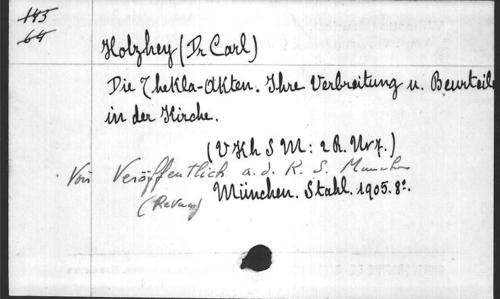 145
64
Holzhey (Dr Carl)
Die Thekla-Akten. Ihre Verbreitung u. Beurteil
in der Kirche.
(VKhSM: 2 R. Nr 7.)
Von Veröffentlich a. d. K. S. Munch
München. Stahl. 1905. 8º.